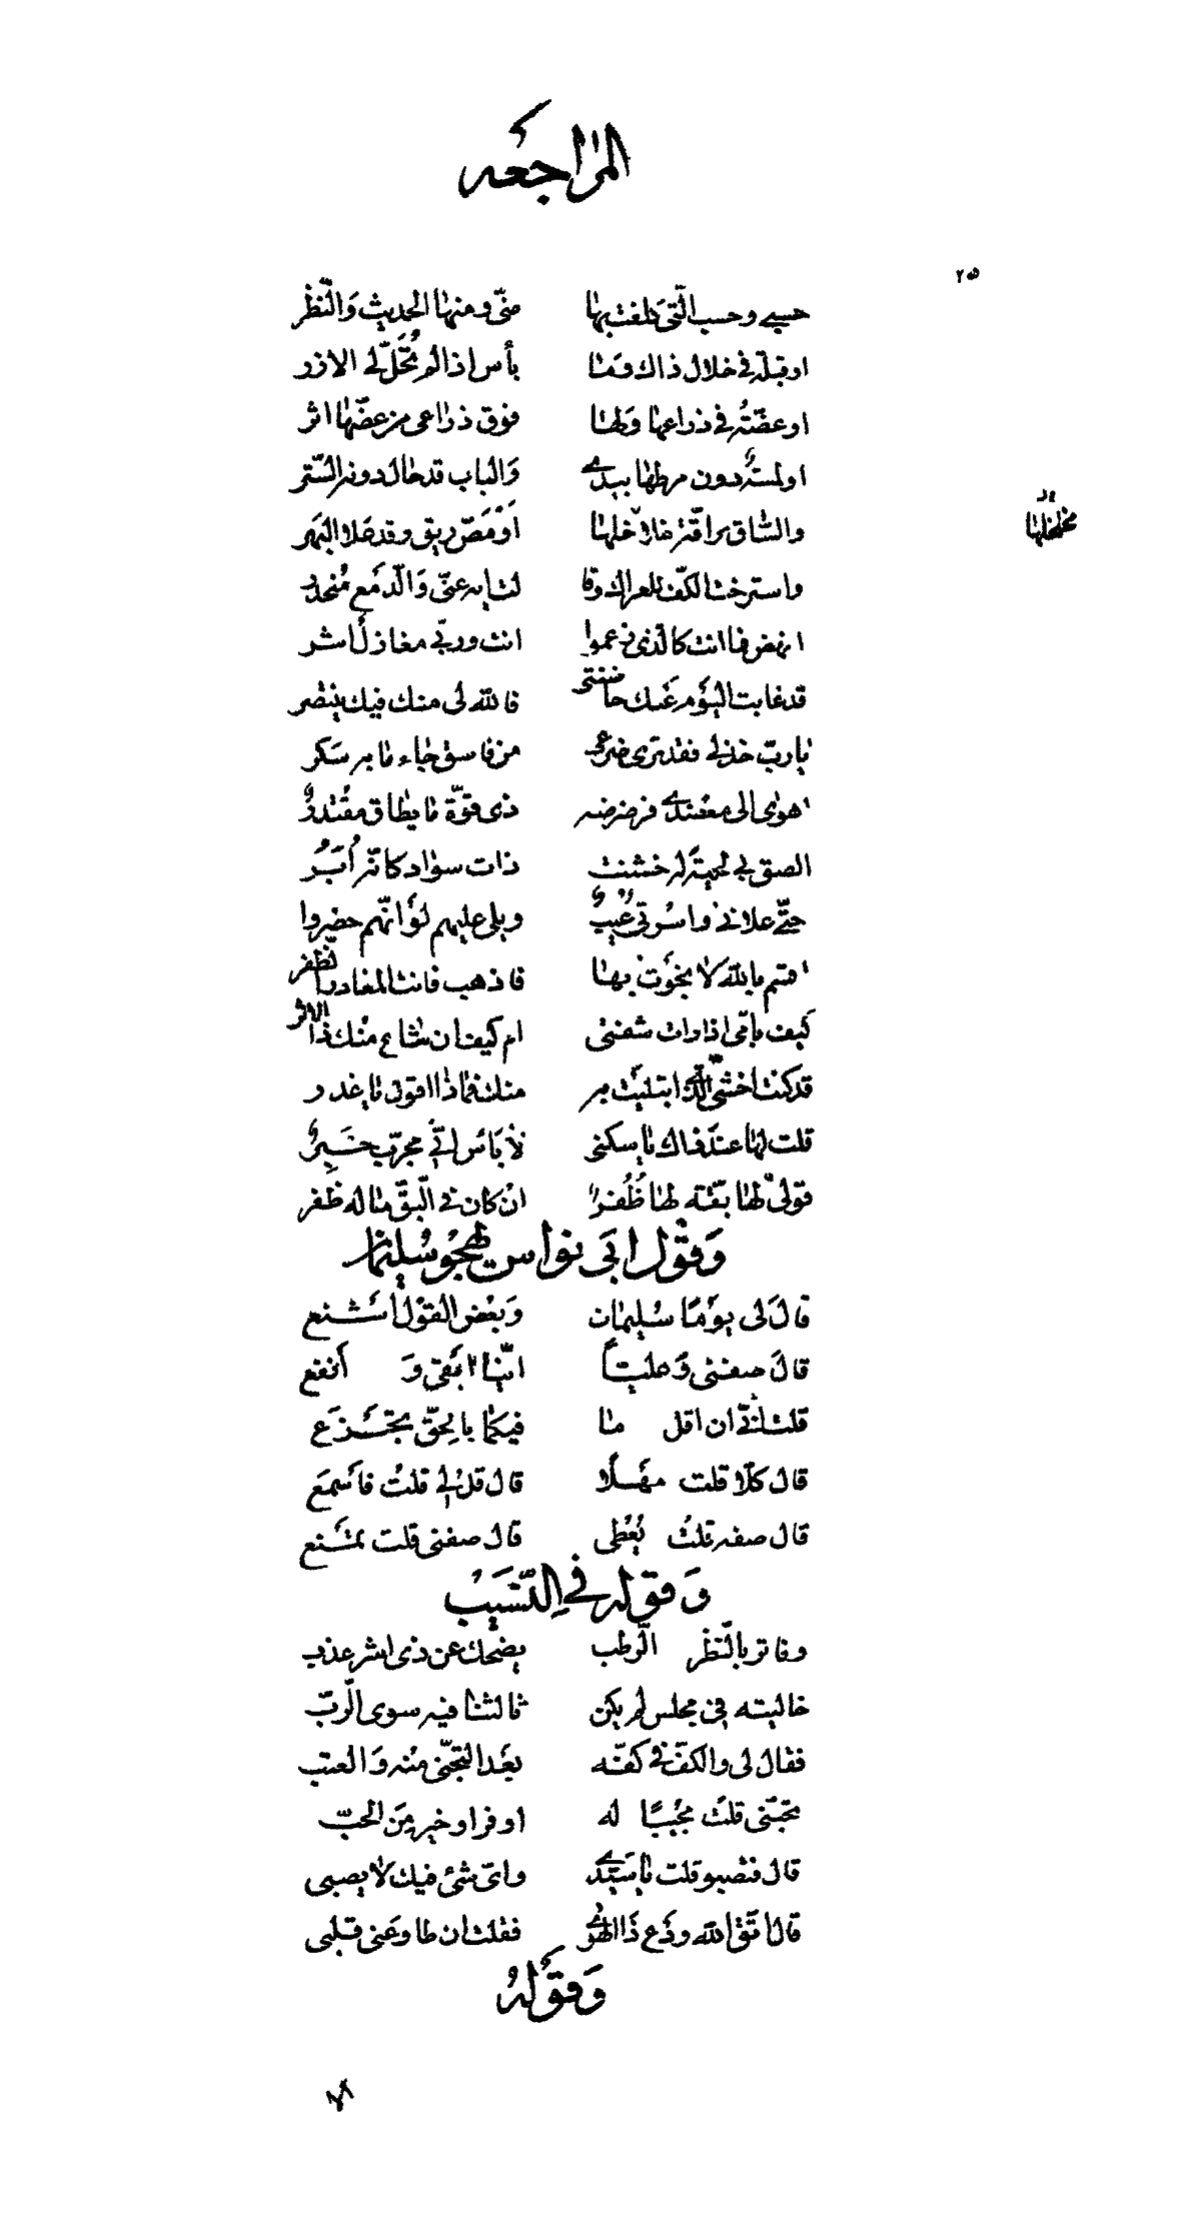 المراجعه
٢٥
حسبي وحسب الّتى كلفت بها منّى ومنها الحديث وَالنّظر
او قبلة في خلال ذاك وَمٰا بأس اذا لم تُحَلّ لى الازر
او عضّةُ في ذراعها وَلهٰا فوق ذراعى من عضّها اثر
او لمسةٌ دون مرطها بيدي وَالباب قد حال دونه السّتر
والسّاق برّاقة خلاخلها اَوْ مَصّ ريق وقد علا البَهر
مخلخلها
واسترخت الكفّ للعراك وقا لت ايه عنّى وَالدّمع مُنحدر
انهض فما انت كالّذى زعموا انت وربّى مغازل اشر
قد غابت اليَوْم عَنك حاضنتى فالله لى منك فيك ينتصر
يا ربّ خذ لى فقد ترى ضرعى من فاسق جاء ما به سَكر
اهوى الى معضدي فرضرضه ذى قوّة ما يطاق مقْتدرٌ
الصق بي لحيةً له خشنت ذات سواد كانّها اُبَرُ
حتّى علاني واسُرتى غُيبٌ ويلى عليهم لوْ انّهم حضروا
اقسم بالله لا نجوْت بها فاذهب فانت المغادر الظفر
كيف بامّى اذا رات شفتى ام كيف ان شاع منْك ذا الاثر
قد كنت اخشى الّذى ابتليت به منك فماذا اقول يا غدر
قلت لها عند ذاك يا سكنى لا بَأس انّي مجرّب خَبِرٌ
قولي لها بقّة لها ظُفُرٌ انْ كان في البقّ ما له ظفر
وَقوْل ابى نواس يهجُو سُليمان
قالَ لى يوْمًا سُليمان وَبعْض القوْل اشنع
قالَ صفنى وَعليّاً ايّنا ابقى وَ أنفع
قلت انّي ان اقل ما فيكما بالحِقّ تجْزَع
قال كلّا قلت مهْلا قال قل لى قلتُ فاسْمَع
قال صفه قلتُ يُعْطى قال صفنى قلت تمْنع
وَ قوله في النّسَيبُ
وفاتر بالنّظر الرّطب يضحك عن ذى اشر عذب
خاليته في مجلس لم يكن ثالثنا فيه سوى الرّبّ
فقال لى والكفّ في كفّه بعْد التجنّى منْه وَالعتب
تحبّنى قلتُ مجيبًا له اوفر او خير مِنَ الحبّ
قال فتصبو قلت يا سَيّدي واىّ شئ فيك لا يصبى
قال اتّق الله ودَع ذَا الهوٰى فقلت ان طاوعَنى قلبى
وَقوْلهُ